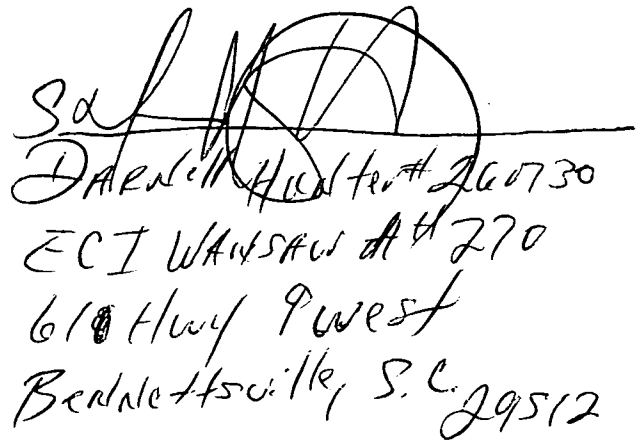 Darnell Hunter # 260730
ECI WAUSAW A# 270
610 Hwy 9 west
Bennettsville, S.C. 29512